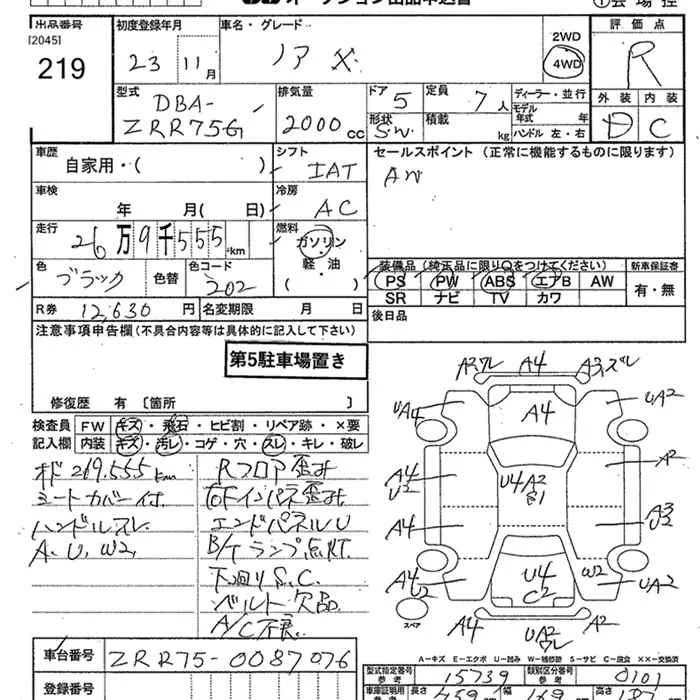 オークション出品申込書
出品番号
[2045]
219
初度登録年月
23 11月
車名・グレード
ノア X
2WD
4WD
評価点
R
型式
DBA-
ZRR75G
排気量
2000cc
ドア
5
定員
7人
形状
SW
積載
kg
ディーラー・並行
モデル
年式 年
ハンドル 左・右
外装 内装
D C
車歴
自家用・( )
シフト
IAT
セールスポイント (正常に機能するものに限ります)
AW
車検
年 月( 日)
冷房
AC
走行
26万9千555km
燃料
ガソリン
軽・油
( )
色
ブラック
色替
色コード
202
装備品 (純正品に限り○をつけてください)
PS PW ABS エアB AW
SR ナビ TV カワ
新車保証書
有・無
R券 12,630円
名変期限 月 日
後日品
注意事項申告欄 (不具合内容等は具体的に記入して下さい)
第5駐車場置き
修復歴 有 〔箇所 〕
検査員
記入欄
FW キズ・飛石・ヒビ割・リペア跡・×要
内装 キズ・汚レ・コゲ・穴・スレ・キレ・破レ
オド269.555km
シートカバー付
ハンドルスレ
A.U.W2,
Rフロア歪み
エンドパネルU
B/Tランプ点灯
下廻りS.C.
ベルト欠品
A/C不良
A2ワレ A4 A3ズレ
UA4 A4 UA2
A4
U2
U4 A2
A2
A4
A3
U2
A4
U2
U4
C2
W2
UA2
スペア
A4
UA2
ワレ
A4
A-キズ E-エクボ U-凹み W-補修跡 S-サビ C-腐食 XX-交換済
車台番号
ZRR75-0087076
登録番号
型式指定番号
参考
15739
類別区分番号
参考
0101
車庫証明用
参考
長さ
459
幅
169
高さ
187